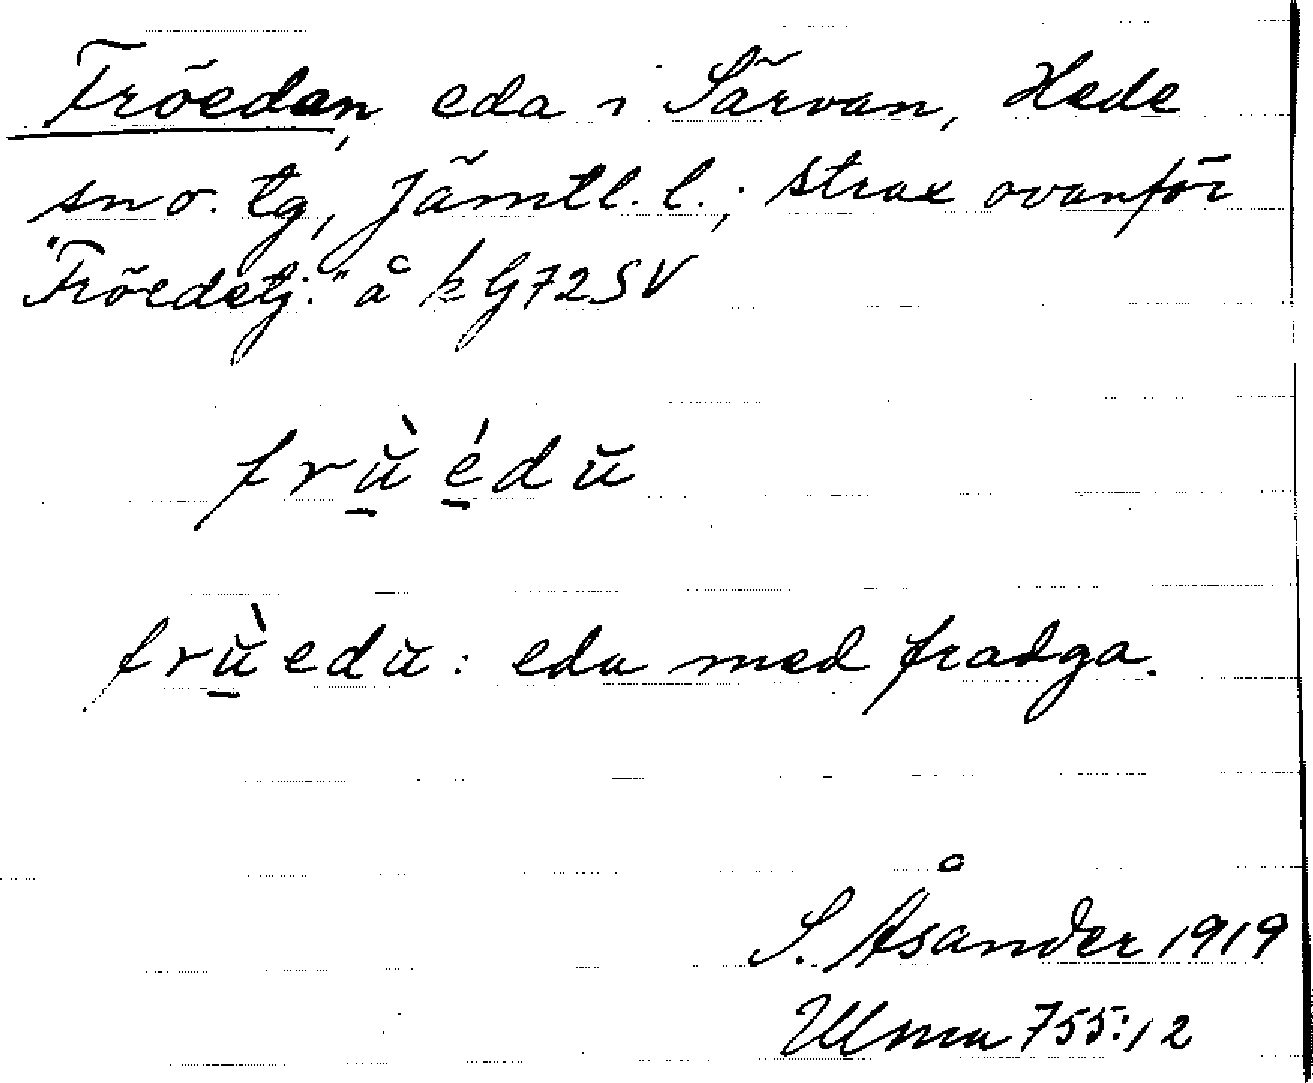 Fröedan, eda i Särvan, Hede
sn o. tg, Jämtl. l.; strax ovanför
"Fröedetj." å k G72SV
frù̱ é̱dŭ
frù̱edŭ: eda med fradga.
S. Åsander 1919
Ulma 755:12